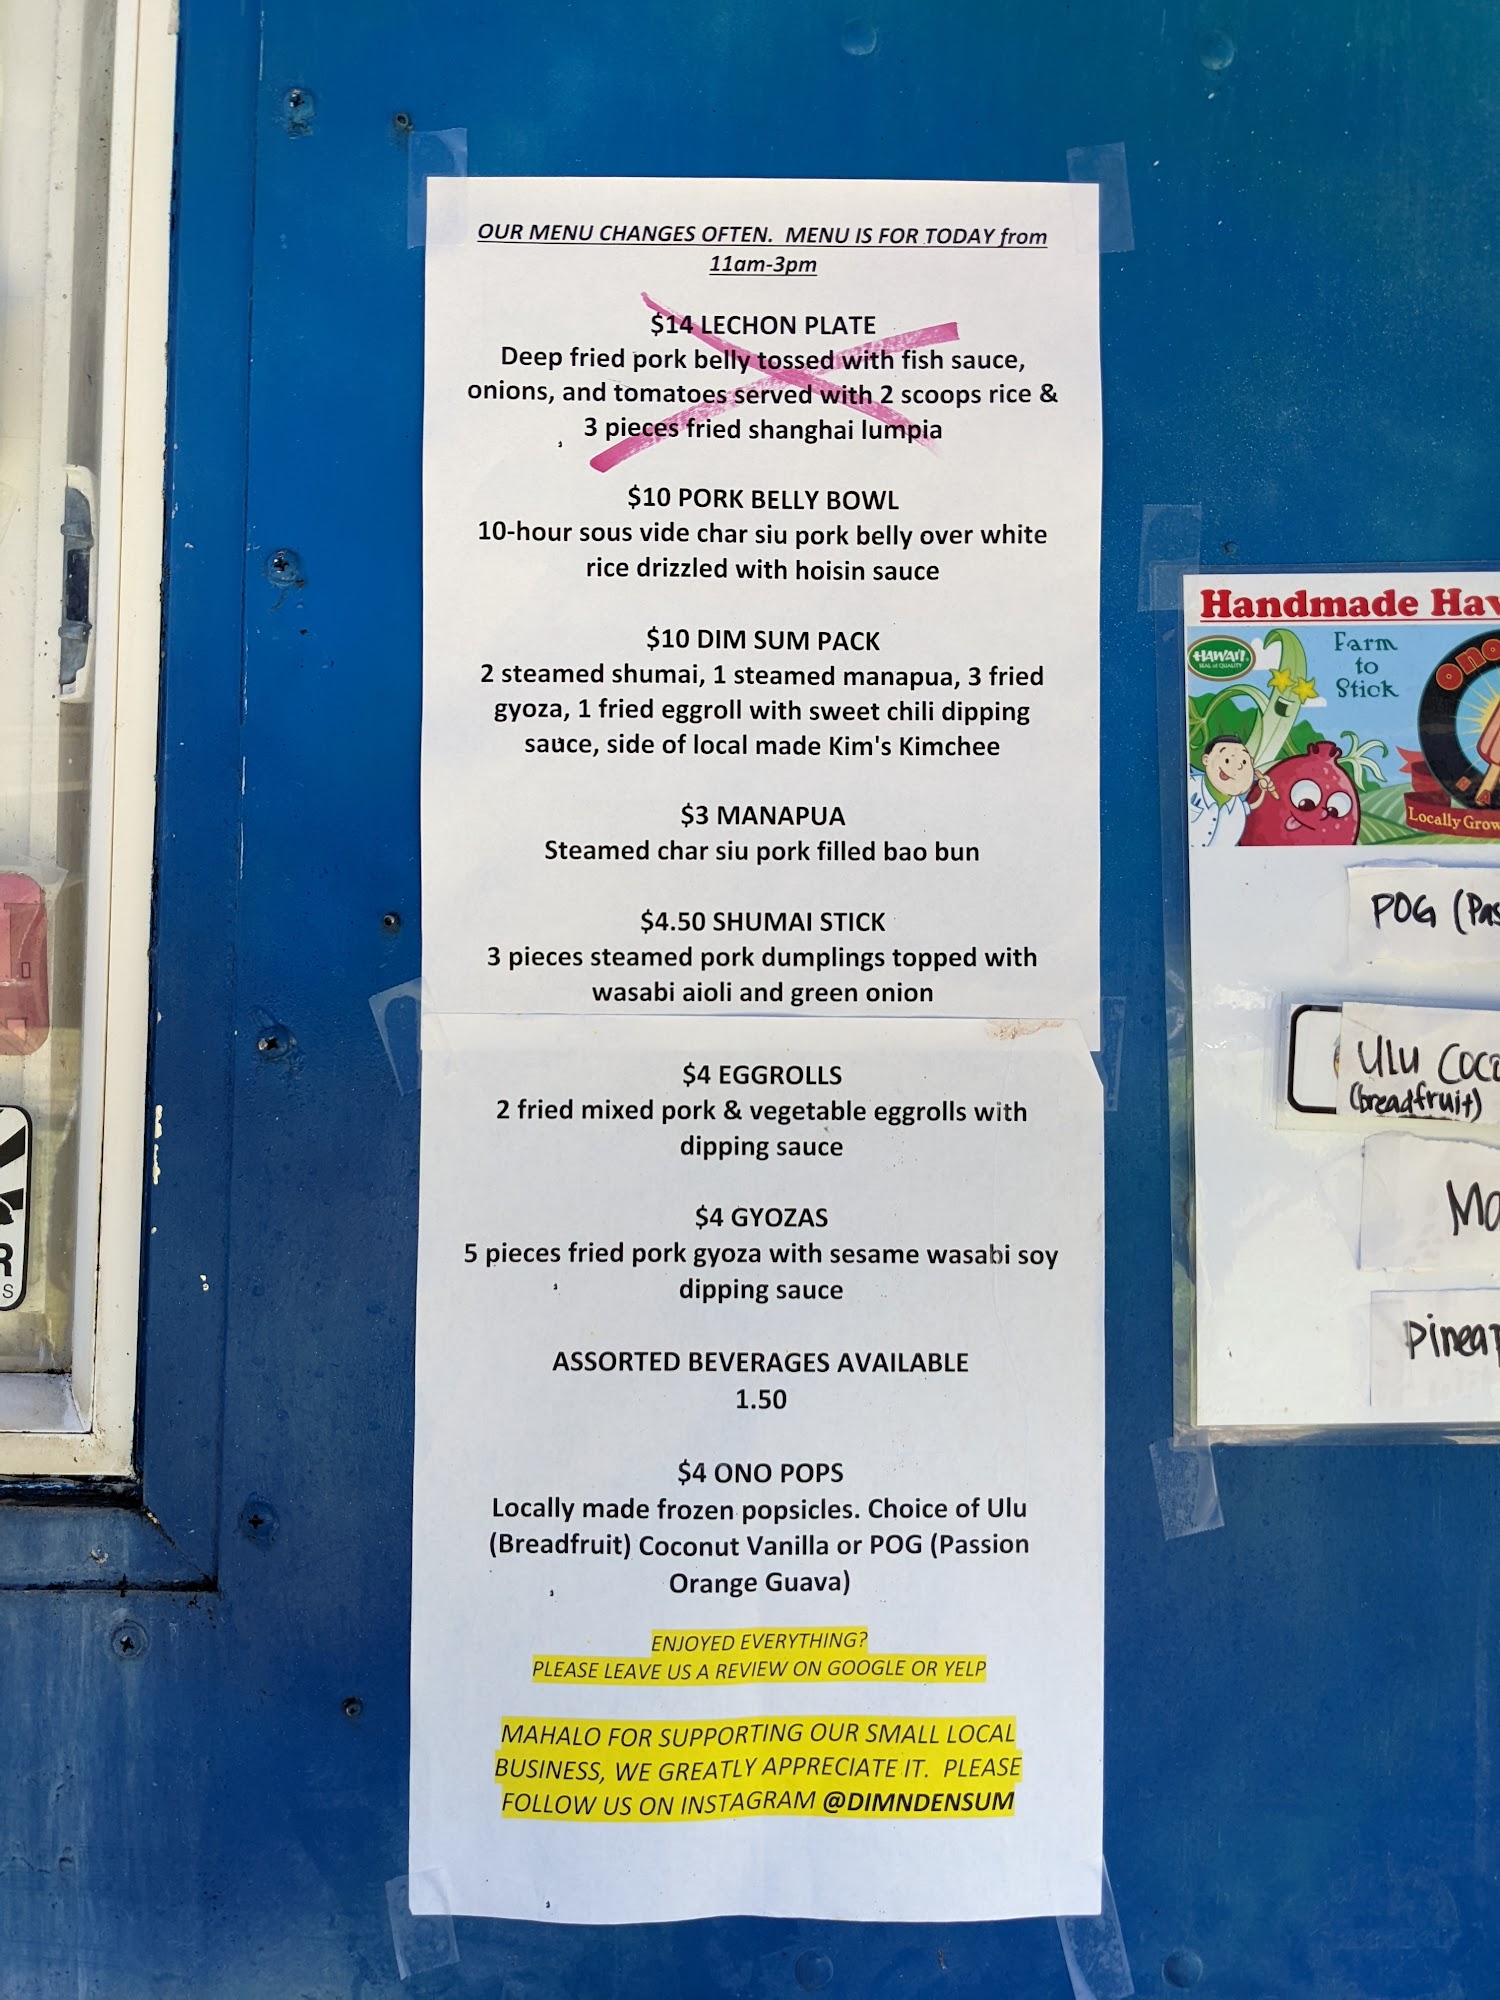 OUR MENU CHANGES OFTEN. MENU IS FOR TODAY from
11am-3pm
$14 LECHON PLATE
Deep fried pork belly tossed with fish sauce,
onions, and tomatoes served with 2 scoops rice &
3 pieces fried shanghai lumpia
$10 PORK BELLY BOWL
10-hour sous vide char siu pork belly over white
rice drizzled with hoisin sauce
$10 DIM SUM PACK
2 steamed shumai, 1 steamed manapua, 3 fried
gyoza, 1 fried eggroll with sweet chili dipping
sauce, side of local made Kim's Kimchee
$3 MANAPUA
Steamed char siu pork filled bao bun
$4.50 SHUMAI STICK
3 pieces steamed pork dumplings topped with
wasabi aioli and green onion
$4 EGGROLLS
2 fried mixed pork & vegetable eggrolls with
dipping sauce
$4 GYOZAS
5 pieces fried pork gyoza with sesame wasabi soy
dipping sauce
ASSORTED BEVERAGES AVAILABLE
1.50
$4 ONO POPS
Locally made frozen popsicles. Choice of Ulu
(Breadfruit) Coconut Vanilla or POG (Passion
Orange Guava)
ENJOYED EVERYTHING?
PLEASE LEAVE US A REVIEW ON GOOGLE OR YELP
MAHALO FOR SUPPORTING OUR SMALL LOCAL
BUSINESS, WE GREATLY APPRECIATE IT. PLEASE
FOLLOW US ON INSTAGRAM @DIMNDENSUM
Handmade
HAWAI'I
SEAL of QUALITY
Farm
to
Stick
Locally
POG
Ulu
(breadfruit)